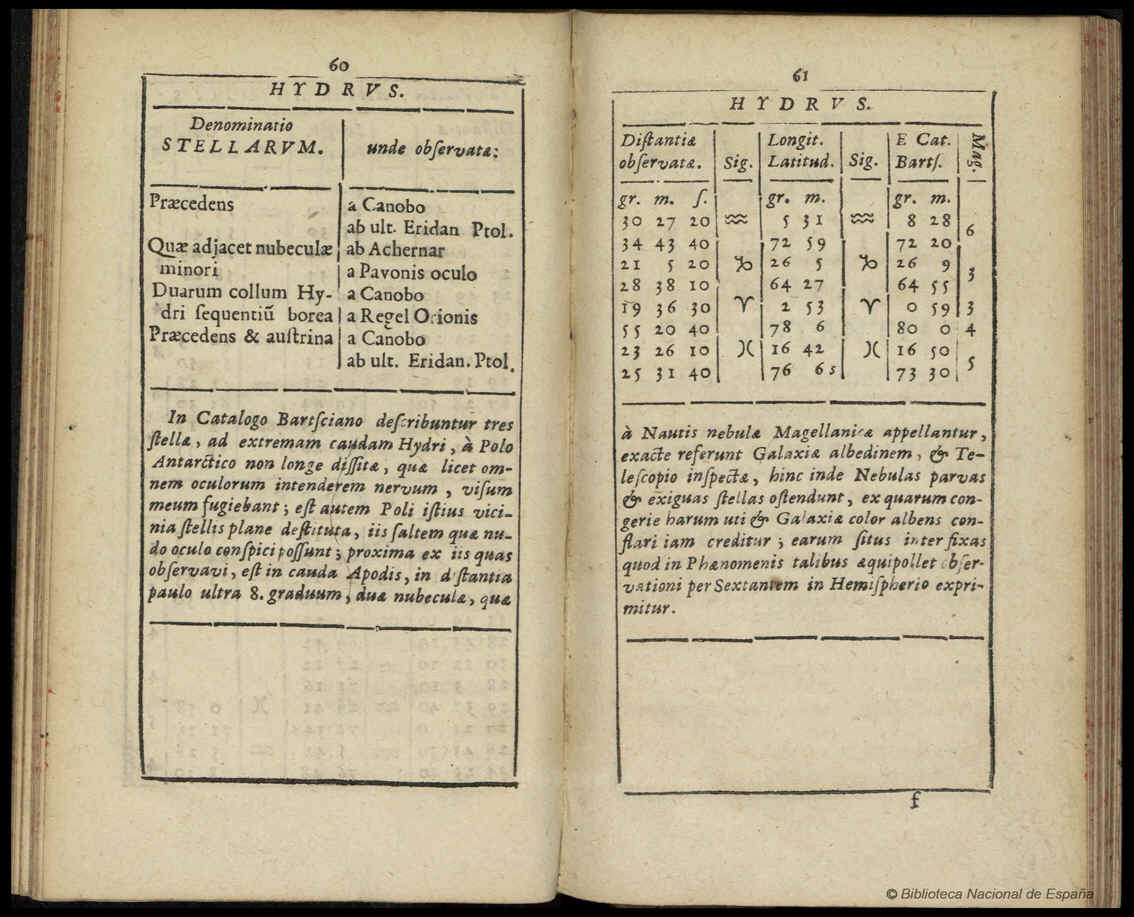 60
HYDRVS.
Denominatio
STELLARVM.
unde obſervatæ:
Præcedens
a Canobo
ab ult. Eridan Ptol.
Quæ adjacet nubeculæ
ab Achernar
minori
a Pavonis oculo
Duarum collum Hy-
a Canobo
dri ſequentiū borea
a Regel Orionis
Præcedens & auſtrina
a Canobo
ab ult. Eridan. Ptol.
In Catalogo Bartſciano deſcribuntur tres
ſtellæ, ad extremam caudam Hydri, à Polo
Antarctico non longe diſſitæ, quæ licet om-
nem oculorum intenderem nervum, viſum
meum fugiebant; eſt autem Poli iſtius vici-
nia ſtellis plane deſtituta, iis ſaltem quæ nu-
do oculo conſpici poſſunt; proxima ex iis quas
obſervavi, eſt in cauda Apodis, in diſtantia
paulo ultra 8. graduum, duæ nubeculæ, quæ
61
HYDRVS.
Diſtantiæ
obſervatæ.
Sig.
Longit.
Latitud.
Sig.
E Cat.
Bartſ.
Mag.
gr. m. ſ. gr. m. gr. m.
30 27 20 ♒ 5 31 ♒ 8 28 6
34 43 40 72 59 72 20
21 5 20 ♑ 26 5 ♑ 26 9 3
28 38 10 64 27 64 55
19 36 30 ♈ 2 53 ♈ 0 59 3
55 20 40 78 6 80 0 4
23 26 10 ♓ 16 42 ♓ 16 50 5
25 31 40 76 6s 73 30
à Nautis nebulæ Magellanicæ appellantur,
exacte referunt Galaxiæ albedinem, & Te-
leſcopio inſpectæ, hinc inde Nebulas parvas
& exiguas ſtellas oſtendunt, ex quarum con-
gerie harum uti & Galaxiæ color albens con-
flari iam creditur; earum ſitus inter fixas
quod in Phænomenis talibus æquipollet obſer-
vationi per Sextantem in Hemiſpherio expri-
mitur.
f
© Biblioteca Nacional de España